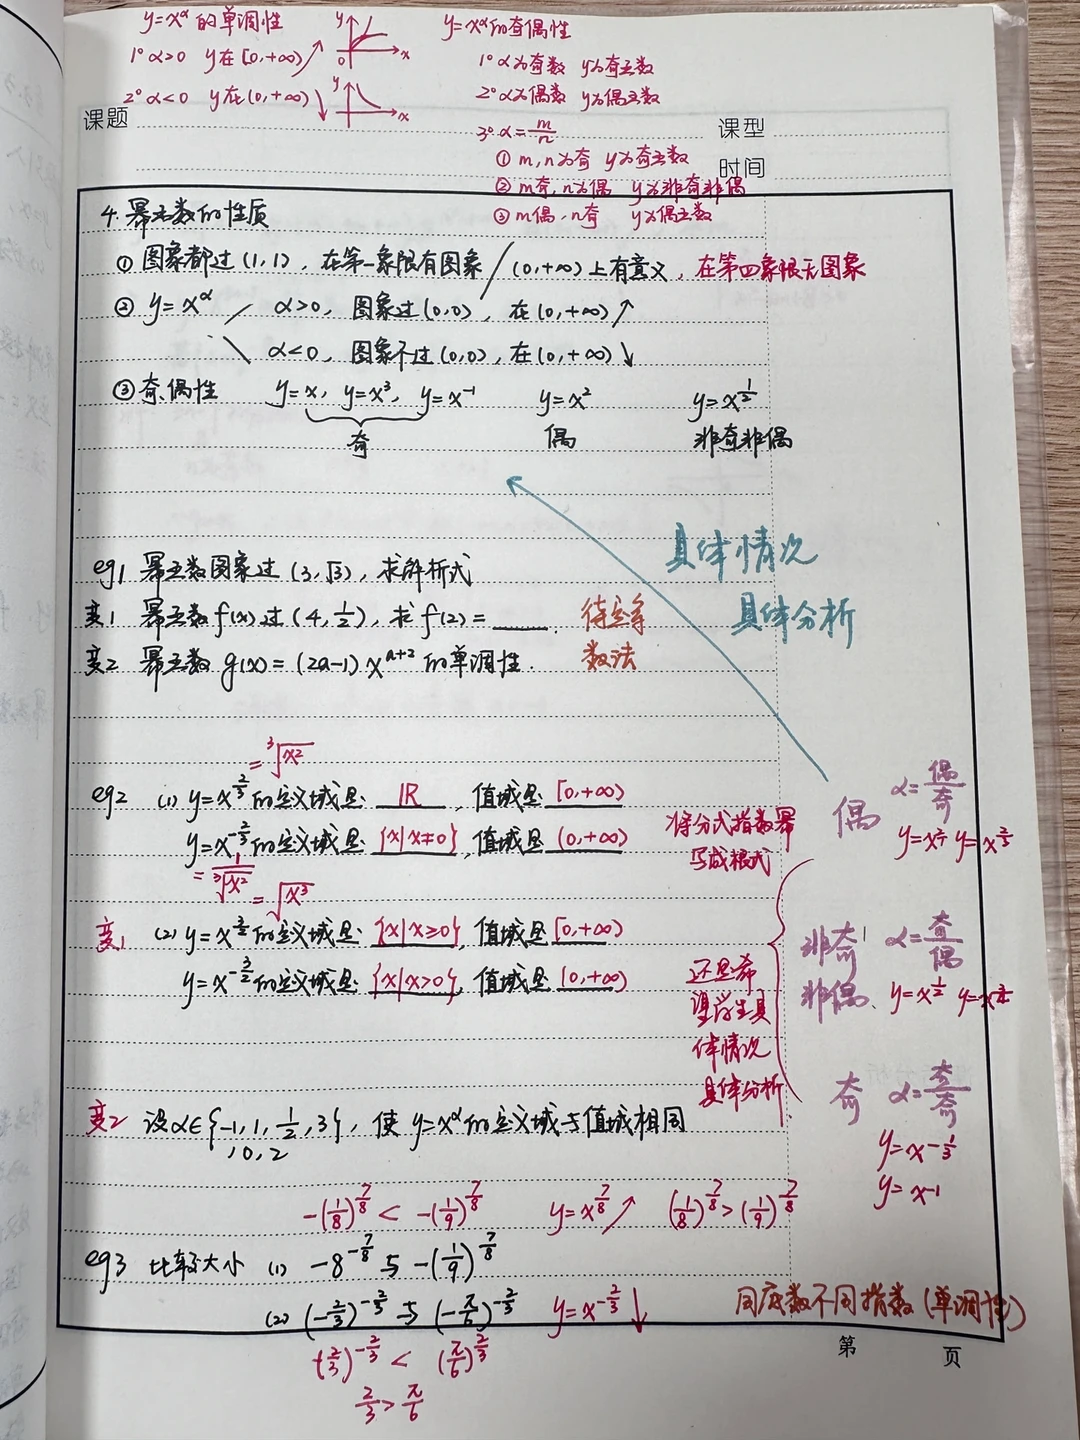 y=x^α 的单调性
1° α>0 y在[0,+∞)↗
2° α<0 y在(0,+∞)↘
y
0
x
y
x
y=x^α的奇偶性
1° α为奇数 y为奇函数
2° α为偶数 y为偶函数
3° α=m/n
① m,n为奇 y为奇函数
② m奇,n为偶 y为非奇非偶
③ m偶,n奇 y为偶函数
课题
课型
时间
4.幂函数的性质
① 图象都过(1,1),在第一象限有图象/(0,+∞)上有意义,在第四象限无图象
② y=x^α α>0,图象过(0,0),在(0,+∞)↗
α<0,图象不过(0,0),在(0,+∞)↘
③ 奇偶性 y=x, y=x³, y=x⁻¹ y=x² y=x^(1/2)
奇 偶 非奇非偶
具体情况
具体分析
eg1 幂函数图象过(3,√3),求解析式
变1 幂函数f(x)过(4,1/2),求f(2)=____.
变2 幂函数g(x)=(2a-1)x^(a+2)的单调性.
待定系
数法
=³√x²
eg2 (1) y=x^(2/3)的定义域是 R,值域是[0,+∞)
y=x^(-2/3)的定义域是{x|x≠0},值域是(0,+∞)
=1/³√x²
=√x³
变1 (2) y=x^(3/2)的定义域是{x|x≥0},值域是[0,+∞)
y=x^(-3/2)的定义域是{x|x>0},值域是(0,+∞)
将分式指数幂
写成根式
还是希
望学生具
体情况
具体分析
偶 α=偶/奇
y=x² y=x^(2/3)
非奇
非偶 α=奇/偶
y=x^(1/2)
奇 α=奇/奇
y=x^(-1/3)
y=x-1
变2 设α∈{-1,1,1/2,3},使y=x^α的定义域与值域相同
,0,2
-(1/8)^(7/8) < -(1/9)^(7/8) y=x^(7/8)↗ (1/8)^(7/8)>(1/9)^(7/8)
eg3 比较大小 (1) -8^(-7/8)与-(1/9)^(7/8)
(2) (-2/3)^(-2/3)与(-π/6)^(-2/3) y=x^(-2/3)↘
同底数不同指数(单调性)
(2/3)^(-2/3) < (π/6)^(2/3)
2/3>π/6
第 页